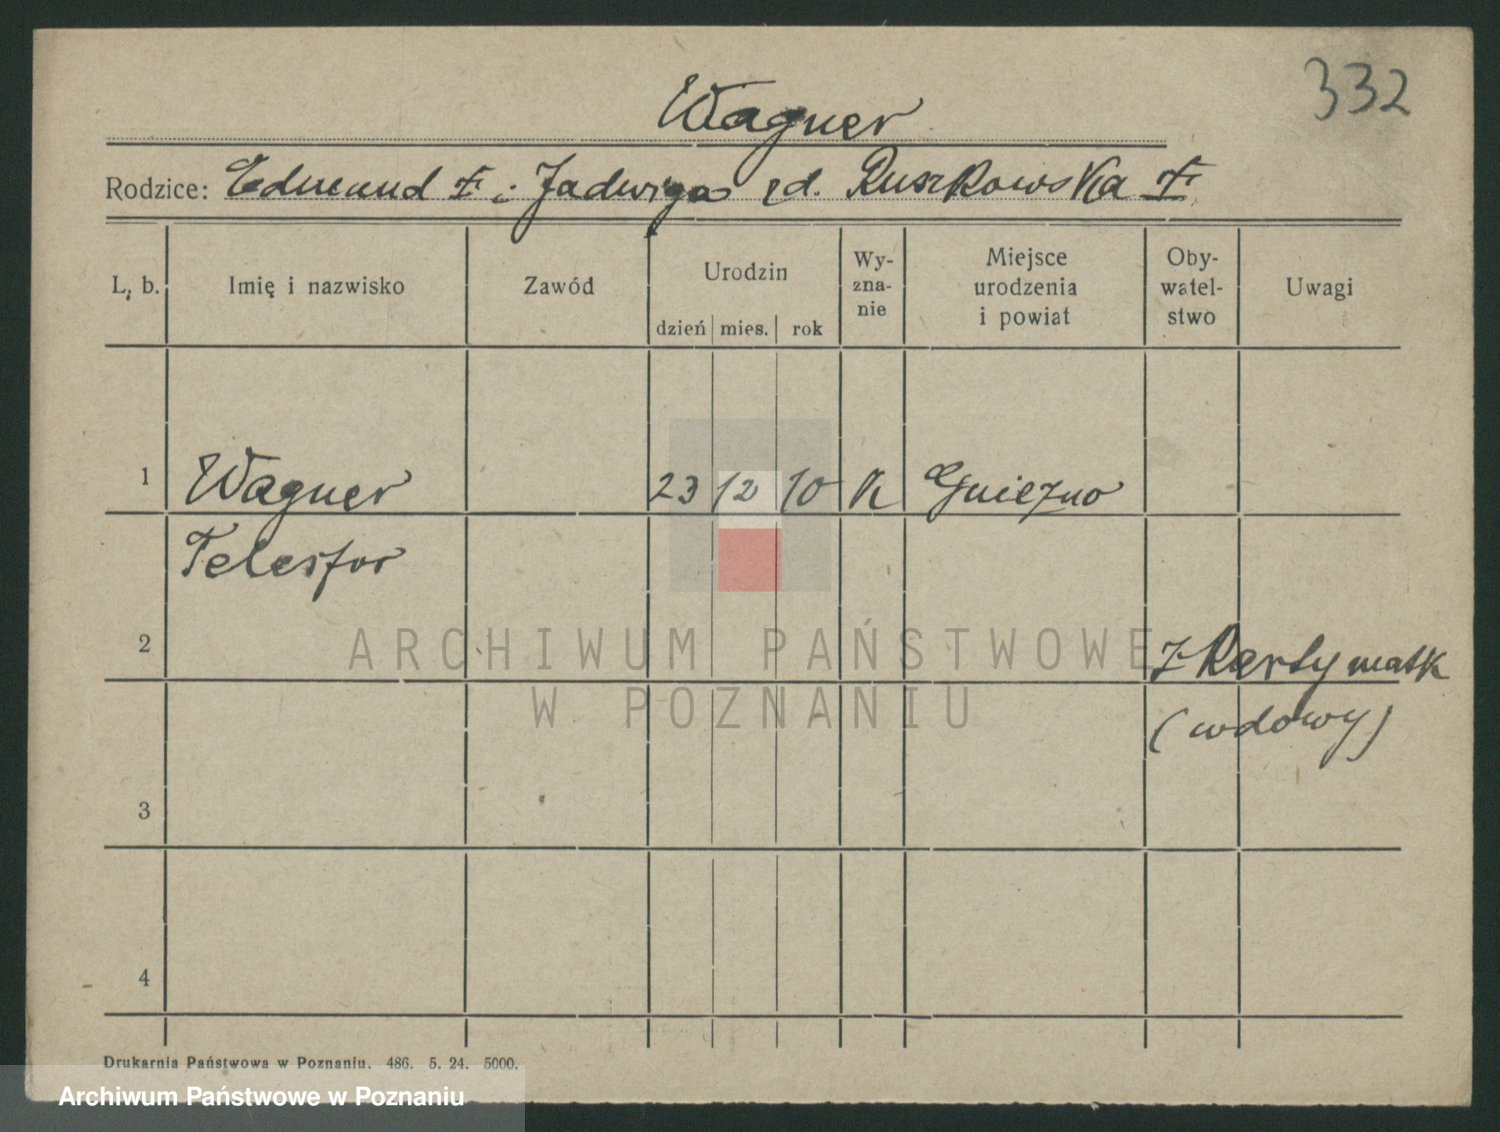 332
Wagner
Rodzice: Edmund † i Jadwiga zd. Ruszkowska †
L. b. Imię i nazwisko Zawód Urodzin Wy-zna-nie Miejsce urodzenia i powiat Oby-watel-stwo Uwagi
dzień mies. rok
1 Wagner 23 12 10 K Gniezno
Telesfor
2
ARCHIWUM PAŃSTWOWE
z Karty matk
W POZNANIU
(wdowy)
3
4
Drukarnia Państwowa w Poznaniu. 486. 5. 24. 5000.
Archiwum Państwowe w Poznaniu